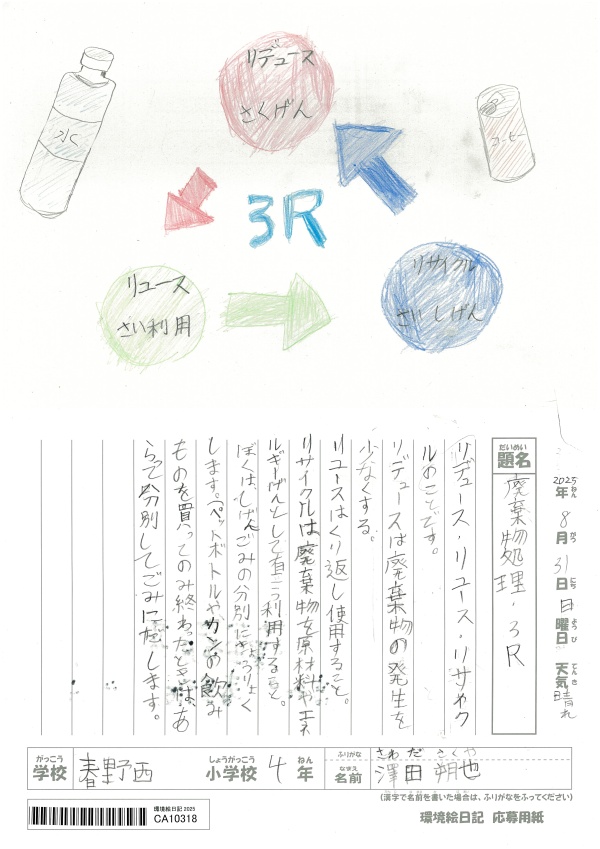 リデュース
さくげん
水
コーヒー
3R
リユース
さい利用
リサイクル
さいしげん
2025年ねん 8月がつ 31日にち 日曜日ようび 天気てんき 晴れ
題名だいめい
廃棄物処理・3R
リデュース・リユース・リサイク
ルのことです。
リデュースは廃棄物の発生を
少なくする。
リユースはくり返し使用すること。
リサイクルは廃棄物を原材料やエネ
ルギーげんとして有こう利用すること。
ぼくは、しげんごみの分別にきょうりょく
します。ペットボトルやカンの飲み
ものを買ってのみ終わったときは、あ
らって分別してごみに出します。
がっこう
学校
春野西
しょうがっこう
小学校
4
ねん
年
ふりがな
さわだ さくや
なまえ
名前
澤田 朔也
(漢字で名前を書いた場合は、ふりがなをふってください)
環境絵日記 2025
CA10318
環境絵日記 応募用紙